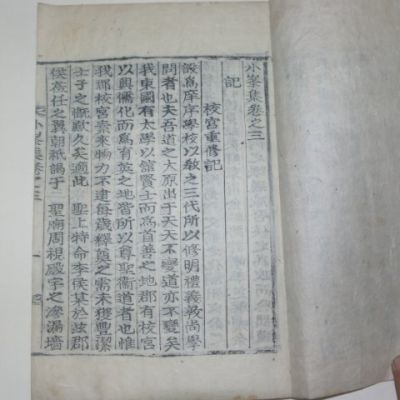 小峯集卷之三
記
校宮重修記
設爲庠序學校以敎之三代所以修明禮義敦尙學
問者也夫吾道之大原出于天天不變道亦不變矣
我東國有太學以儲賢士而爲首善之地郡有校宮
以興儒化而爲育英之地皆所以尊聖衛道者也惟
我郡校宮素來物力不逮每歲釋奠之需未獲豐潔
士子之慨歎久矣適此 聖上特命李侯某於玆郡
侯莅任之翼朝祗謁于 聖廟周視殿宇之滲漏墻